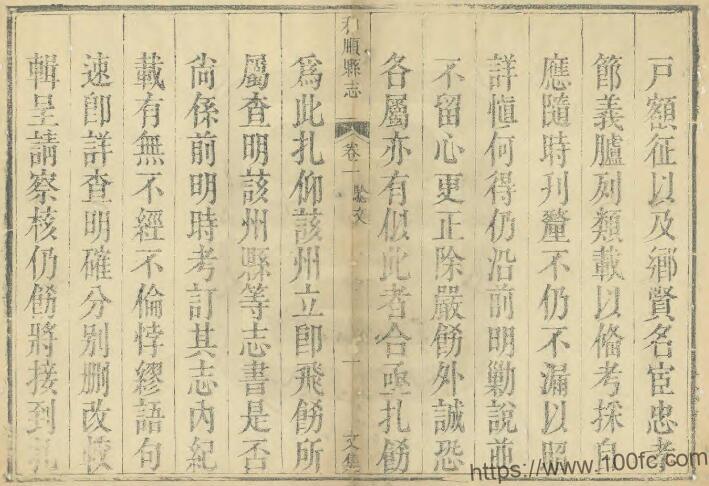 戸額征以及鄉賢名宦忠孝
節義臚列類載以備考採自
應隨時刋釐不仍不漏以昭
詳慎何得仍沿前明勦說而
不留心更正除嚴飭外誠恐
各屬亦有似此者合亟扎飭
和順縣志
卷一
驗文
一
文集
爲此扎仰該州立卽飛飭所
屬查明該州縣等志書是否
尙係前明時考訂其志內紀
載有無不經不倫悖繆語句
速卽詳查明確分别删改校
輯呈請察核仍飭將接到
https://www.100fc.com